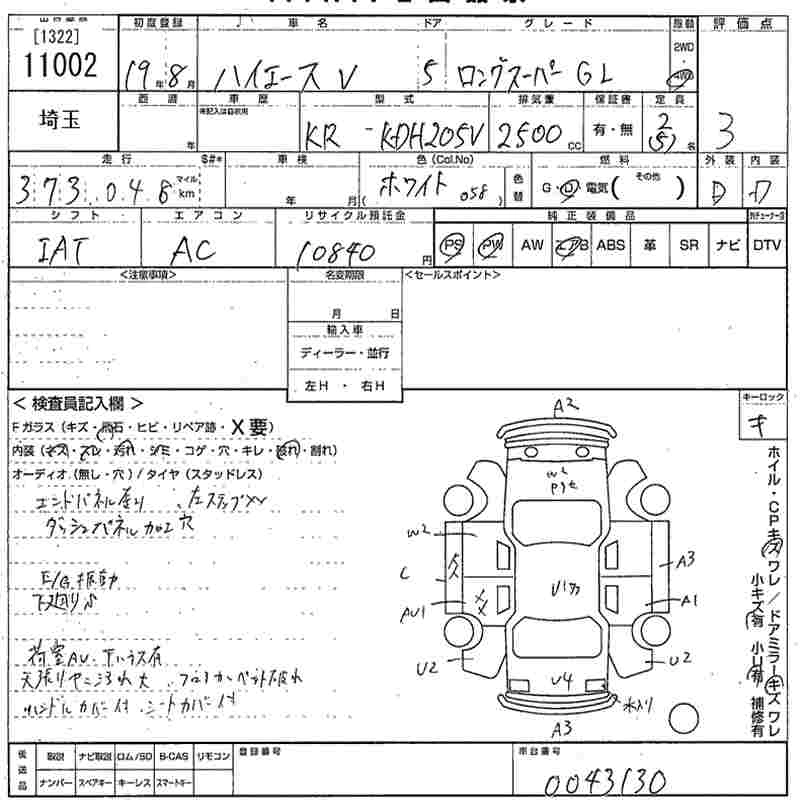 [1322]
11002
初度登録 車名 ドア グレード 駆動 評価点
19年8月 ハイエースV 5 ロングスーパーGL 2WD 4WD
埼玉
車歴 型式 排気量 保証書 定員
年 KR-KDH205V 2500CC 有・無 2(5)名 3
走行 車検 色(Col.No) 色替 燃料 外装 内装
373,048 マイル km 年 月 ホワイト(058) G・D・電気(その他) D D
シフト エアコン リサイクル預託金 純正装備品
IAT AC 10840円 PS PW AW エアB ABS 革 SR ナビ DTV
<注意事項> 名変期限 <セールスポイント>
月 日
輸入車
ディーラー・並行
左H・右H
<検査員記入欄> キーロック
Fガラス(キズ・飛石・ヒビ・リペア跡・X要) キ
内装(キズ・スレ・汚れ・シミ・コゲ・穴・キレ・破れ・割れ)
オーディオ(無し・穴)/タイヤ(スタッドレス)
エンドパネル座り 左ステップメソ
ダッシュパネル加工穴
E/G振動
下廻りサ
荷室AU・
フロアカーペット破れ
ハンドルカバー付 シートカバー付
A2
W2
W2
A3
C
U1カ
A1
AU1
U2
U2
U4
水入り
A3
ホイル・CPキズワレ/ドアミラーキズワレ
小キズ有 小U有 補修有
後送品 取説 ナビ取説 ロム/SD B-CAS リモコン 登録番号 車台番号
ナンバー スペアキー キーレス スマートキー 0043130